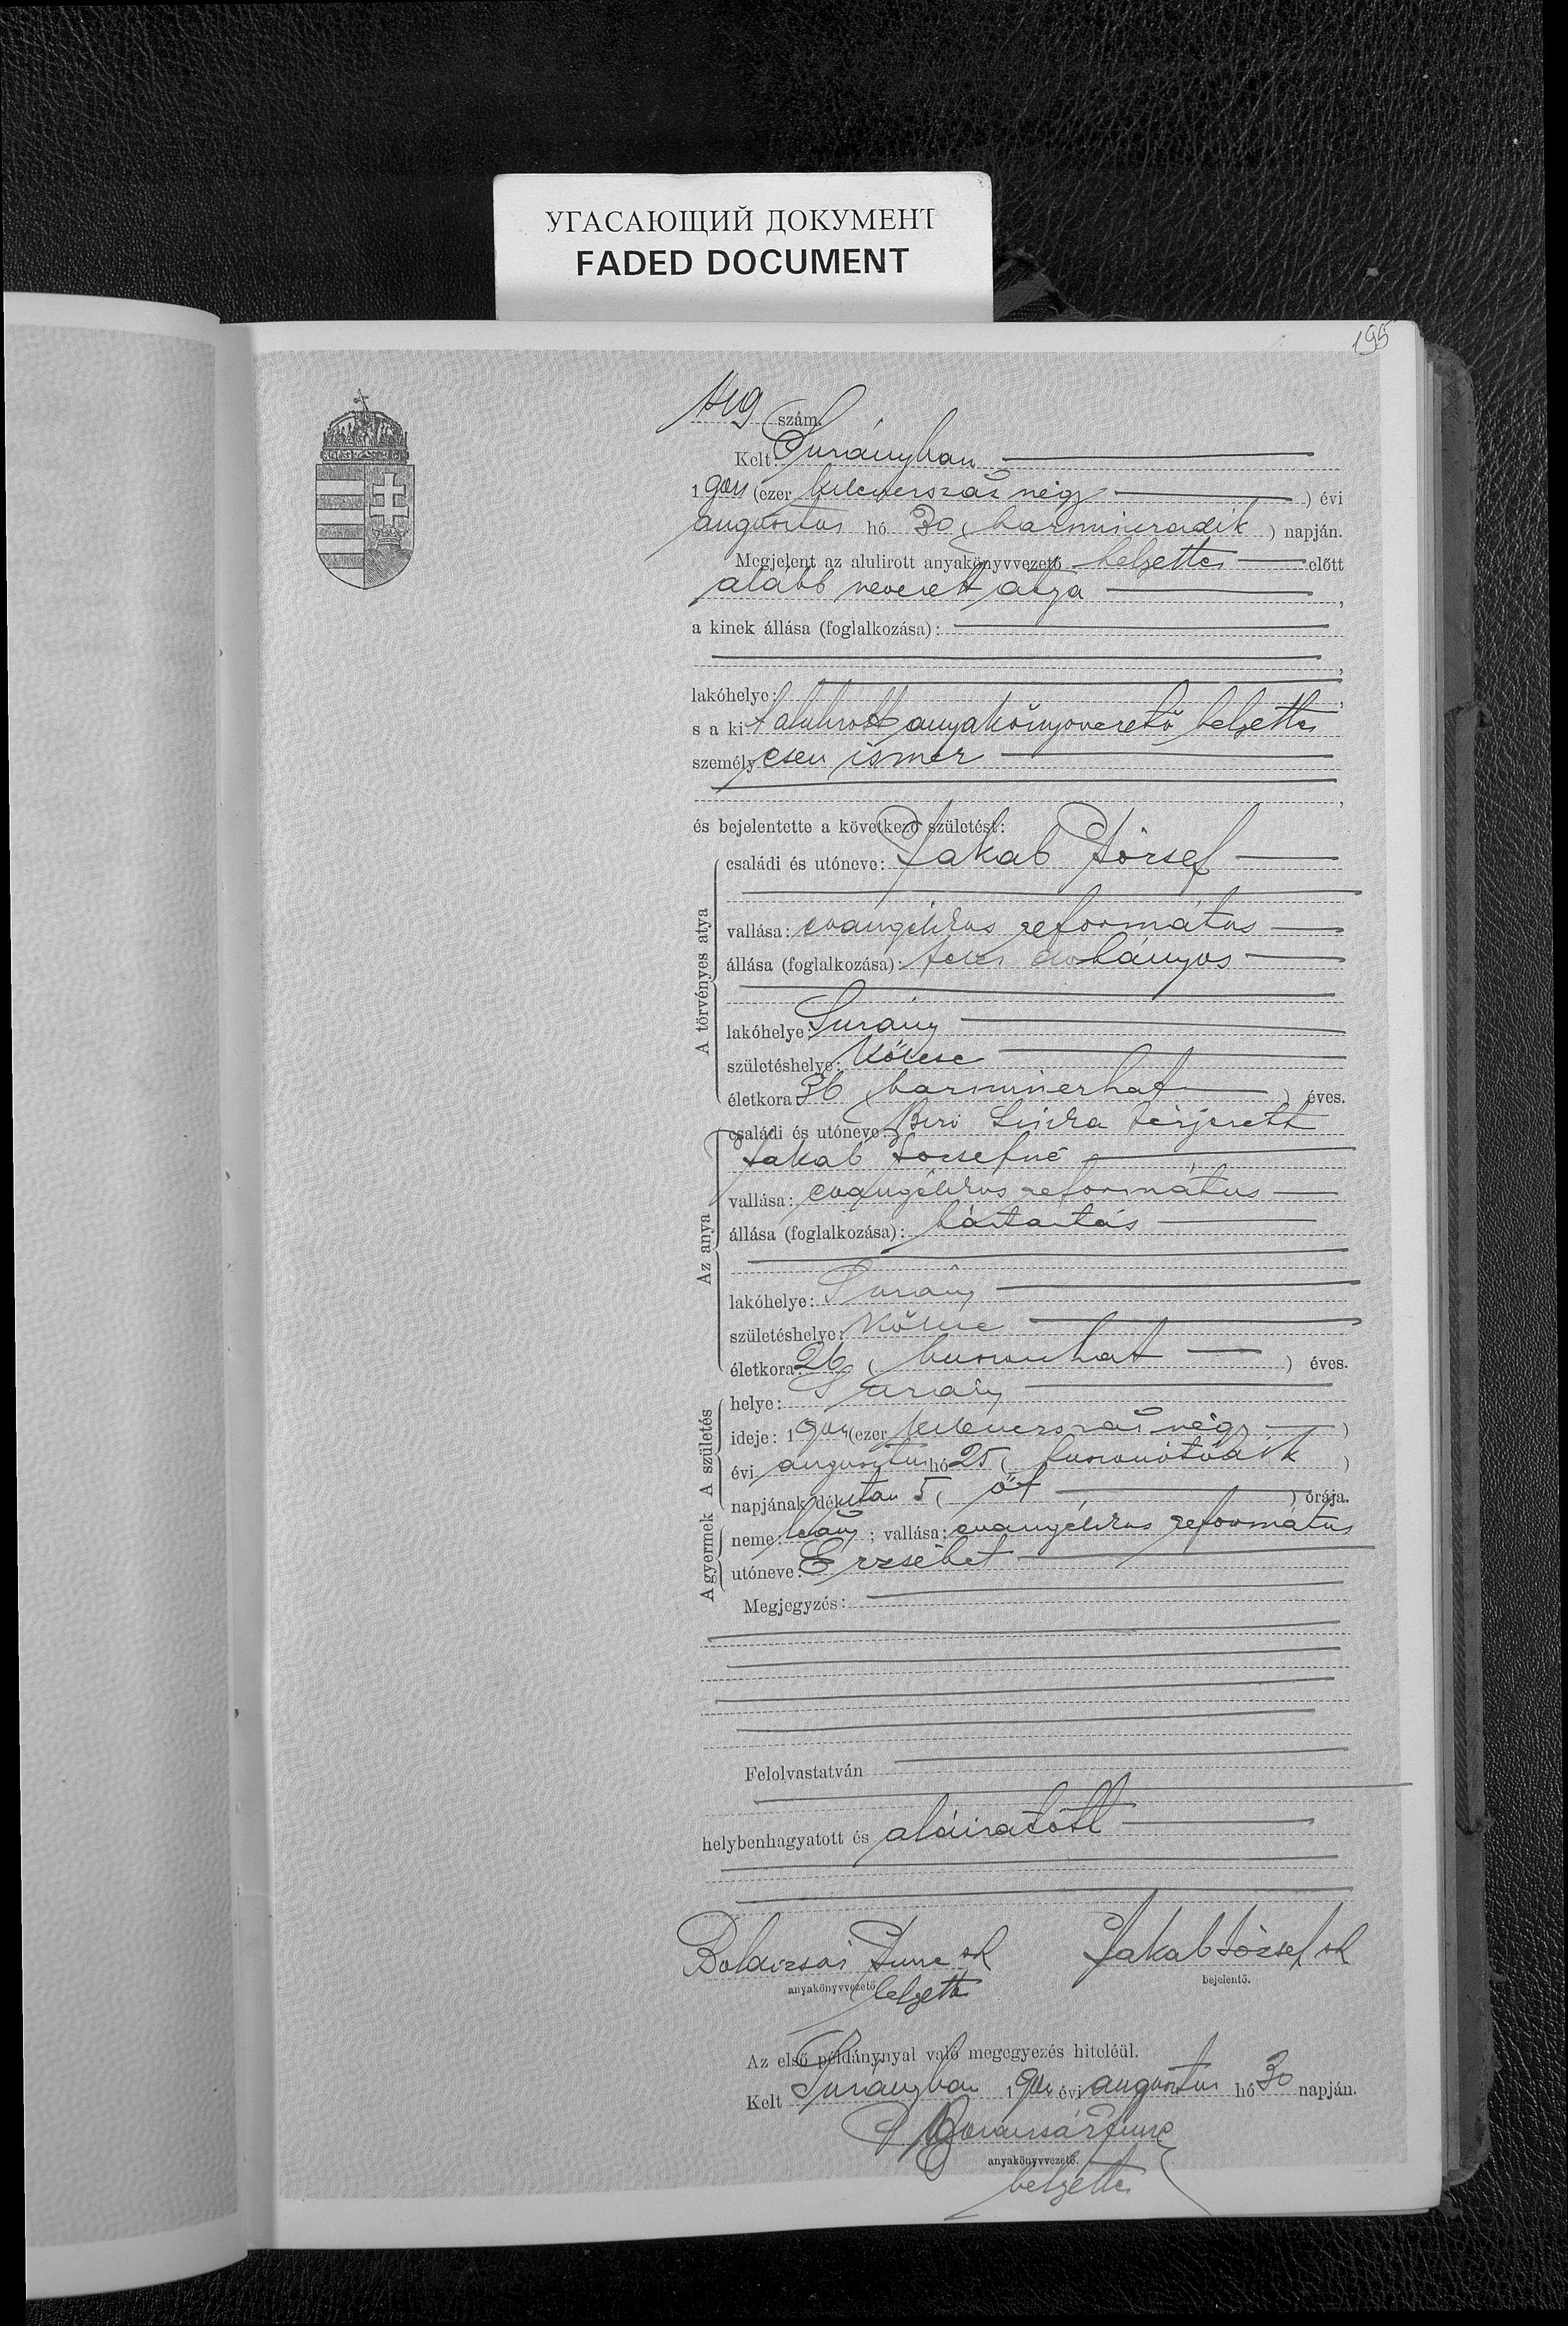 УГАСАЮЩИЙ ДОКУМЕНТ
FADED DOCUMENT
195
szám.
Kelt Surányban
1904 (ezer kilencszáz négy) évi
augusztus hó 30 (harminczadik) napján.
Megjelent az alulirott anyakönyvvezető helyettes előtt
alább nevezett atya,
a kinek állása (foglalkozása):
lakóhelye:
s a kit alulirott anyakönyvvezető helyettes
személyesen ismer
és bejelentette a következő születést:
A törvényes atya
családi és utóneve: Jakab József
vallása: evangélikus református
állása (foglalkozása): feles dohányos
lakóhelye: Surány
születéshelye: Kölcse
életkora: 36 (harminczhat) éves.
Az anya
családi és utóneve: Biró férjezett
Jakab Józsefné
vallása: evangélikus református
állása (foglalkozása): háztartás
lakóhelye: Surány
születéshelye: Kölcse
életkora: 26 (huszonhat) éves.
A születés
helye: Surány
ideje: 1904 (ezer kilenczszáz négy)
évi augusztus hó 25 (huszonötödik)
napjának délután 5 (öt) órája.
A gyermek
neme: leány; vallása: evangélikus református
utóneve: Erzsébet
Megjegyzés:
Felolvastatván
helybenhagyatott és aláiratott
Imre sk Jakab József sk
anyakönyvvezető bejelentő.
helyettes
Az első példánynyal való megegyezés hiteléül.
Kelt Surányban 1904 évi augusztus hó 30 napján.
Imre
anyakönyvvezető.
helyettes